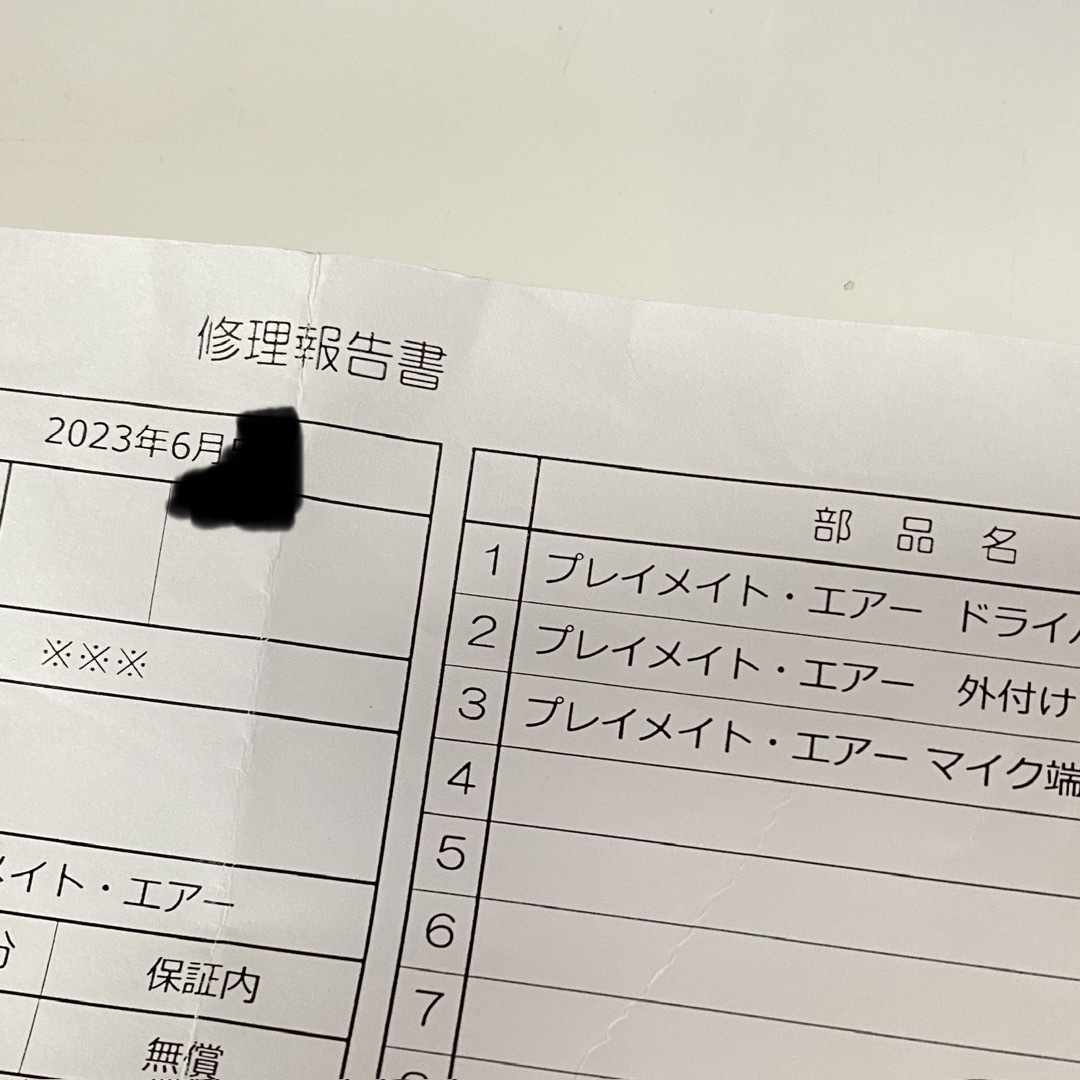 修理報告書
2023年6月
※※※
メイト・エアー
分
保証内
無償
部品名
1 プレイメイト・エアー ドライ
2 プレイメイト・エアー 外付け
3 プレイメイト・エアー マイク端
4
5
6
7